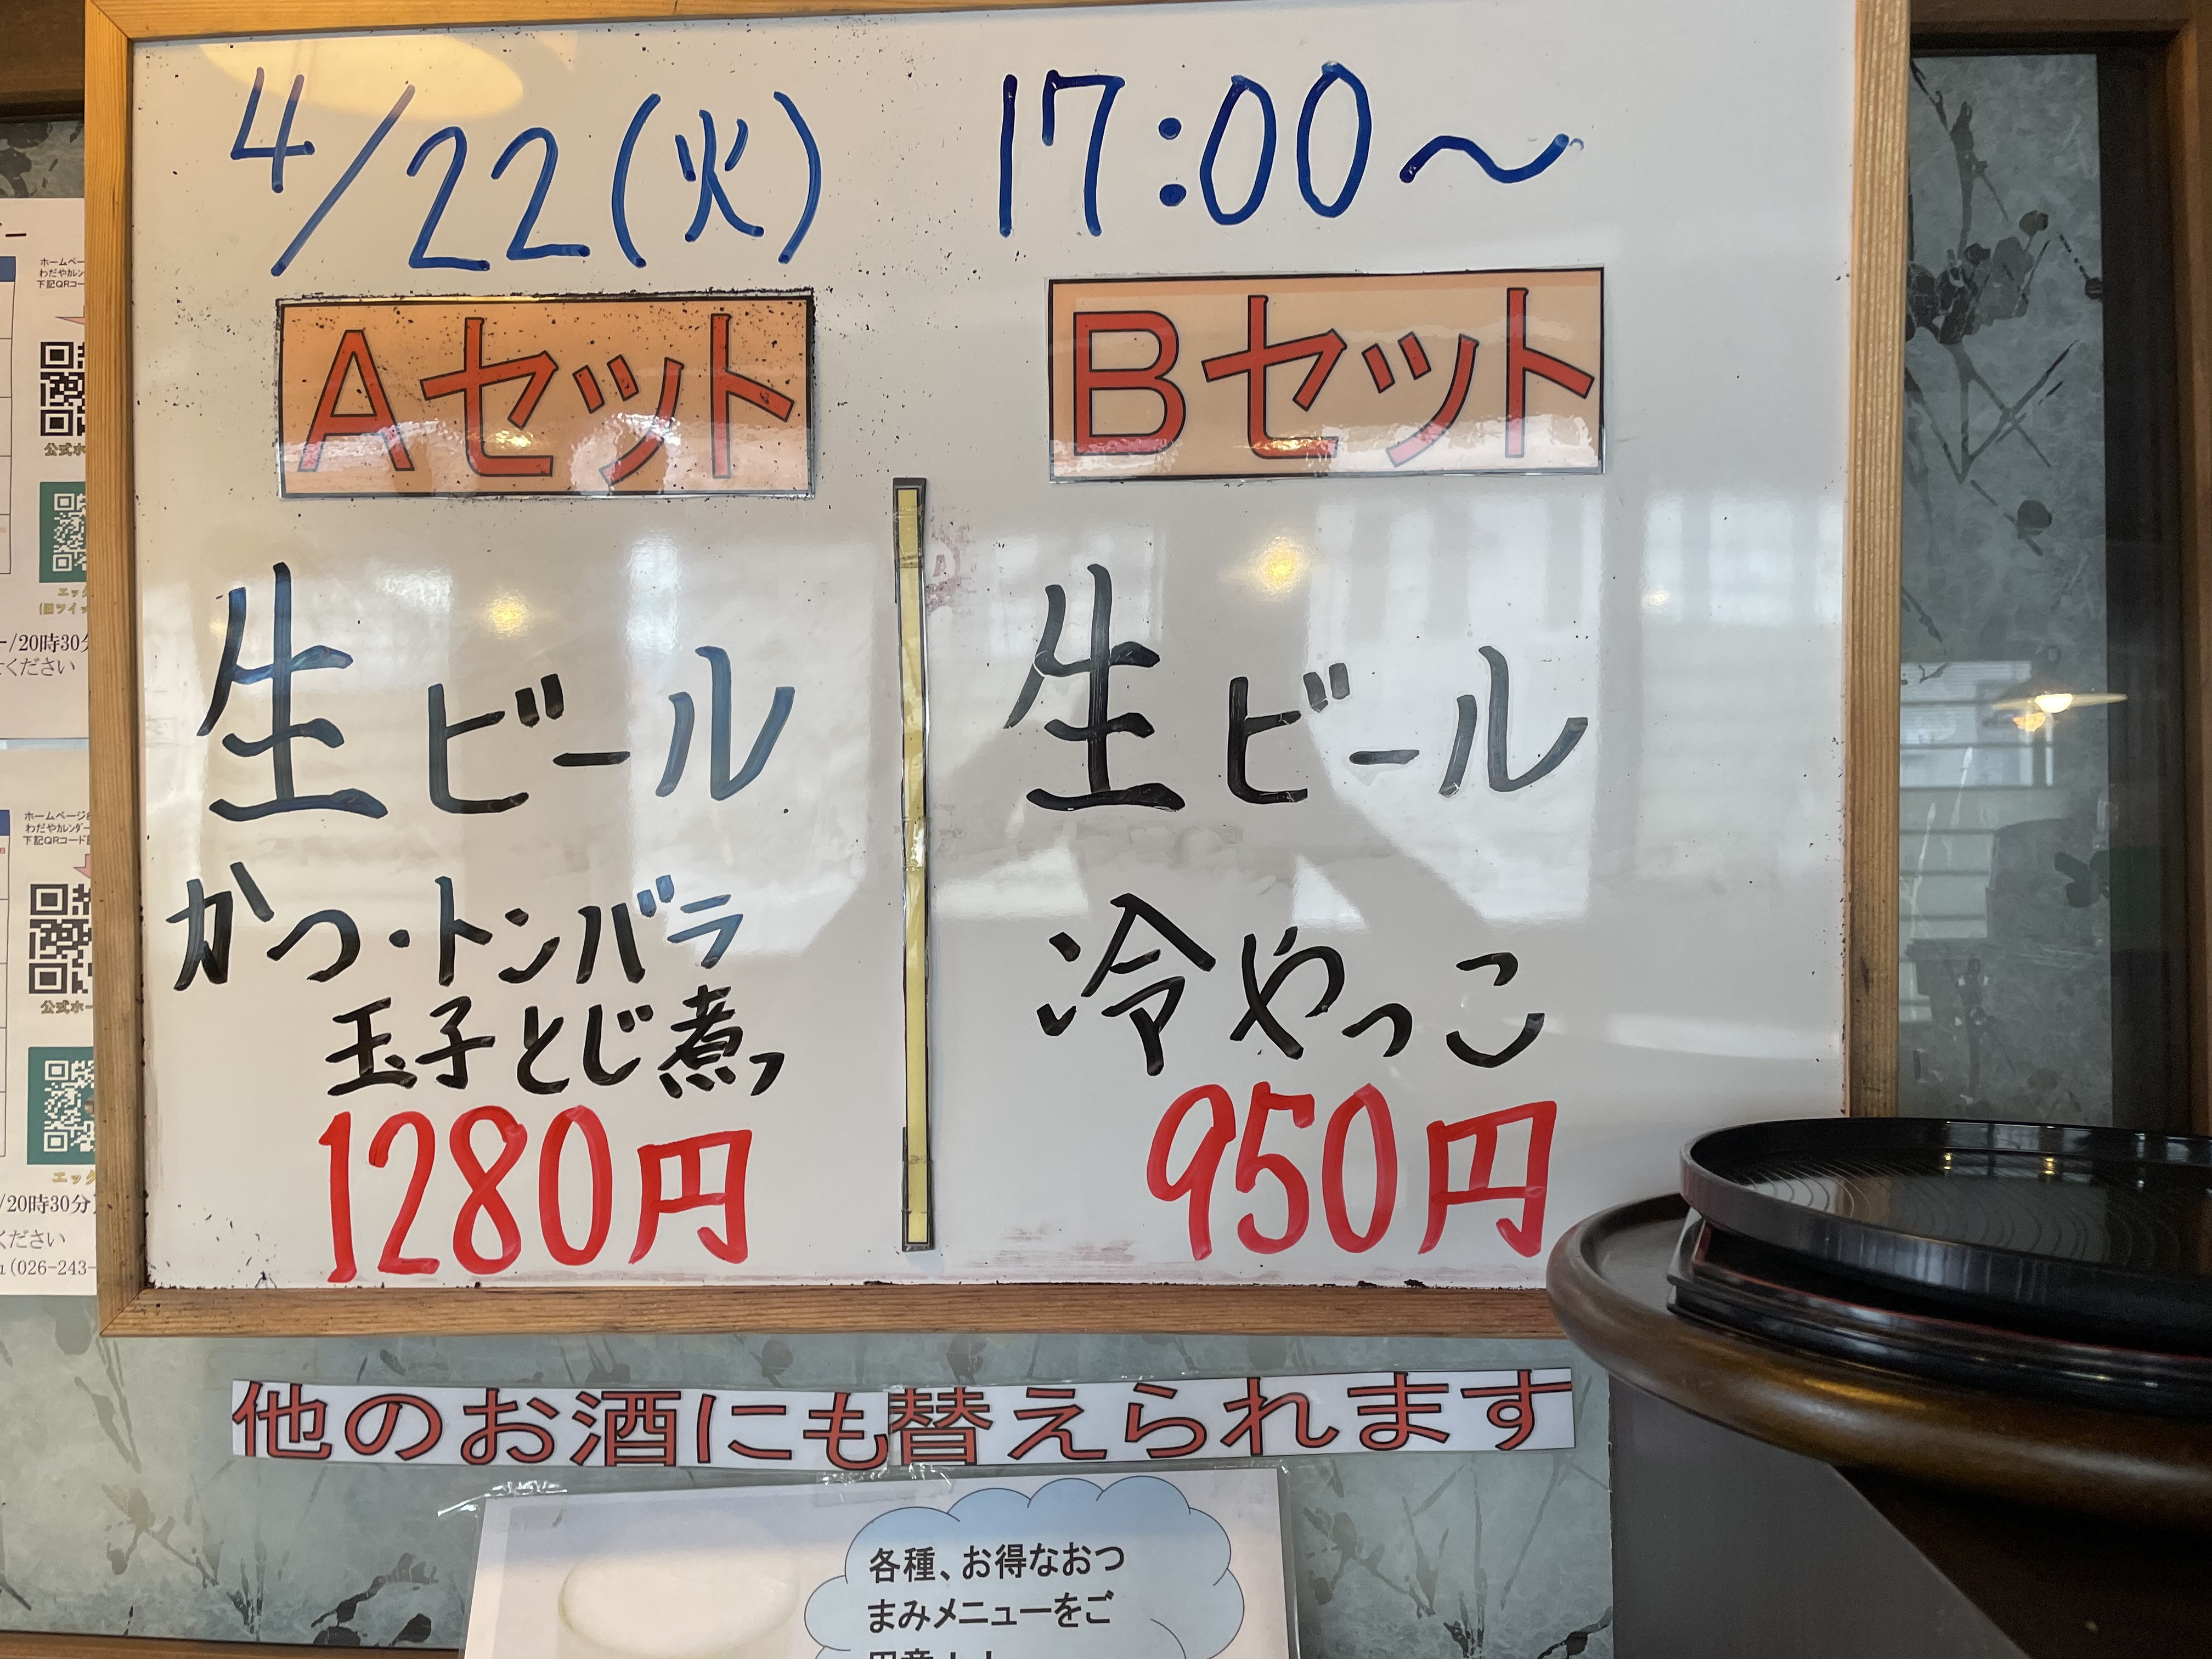 4/22(火) 17:00〜
Aセット
生ビール
かつ・トンバラ
玉子とじ煮
1280円
Bセット
生ビール
冷やっこ
950円
他のお酒にも替えられます
各種、お得なおつ
まみメニューをご
ホームペー
わだやカレン
下記QRコー
公式ホ
エック
(旧ツイッ
/20時30分
ください
ホームページ
わだやカレンダー
下記QRコード
公式ホー
エック
/20時30分
ください
(026-243-